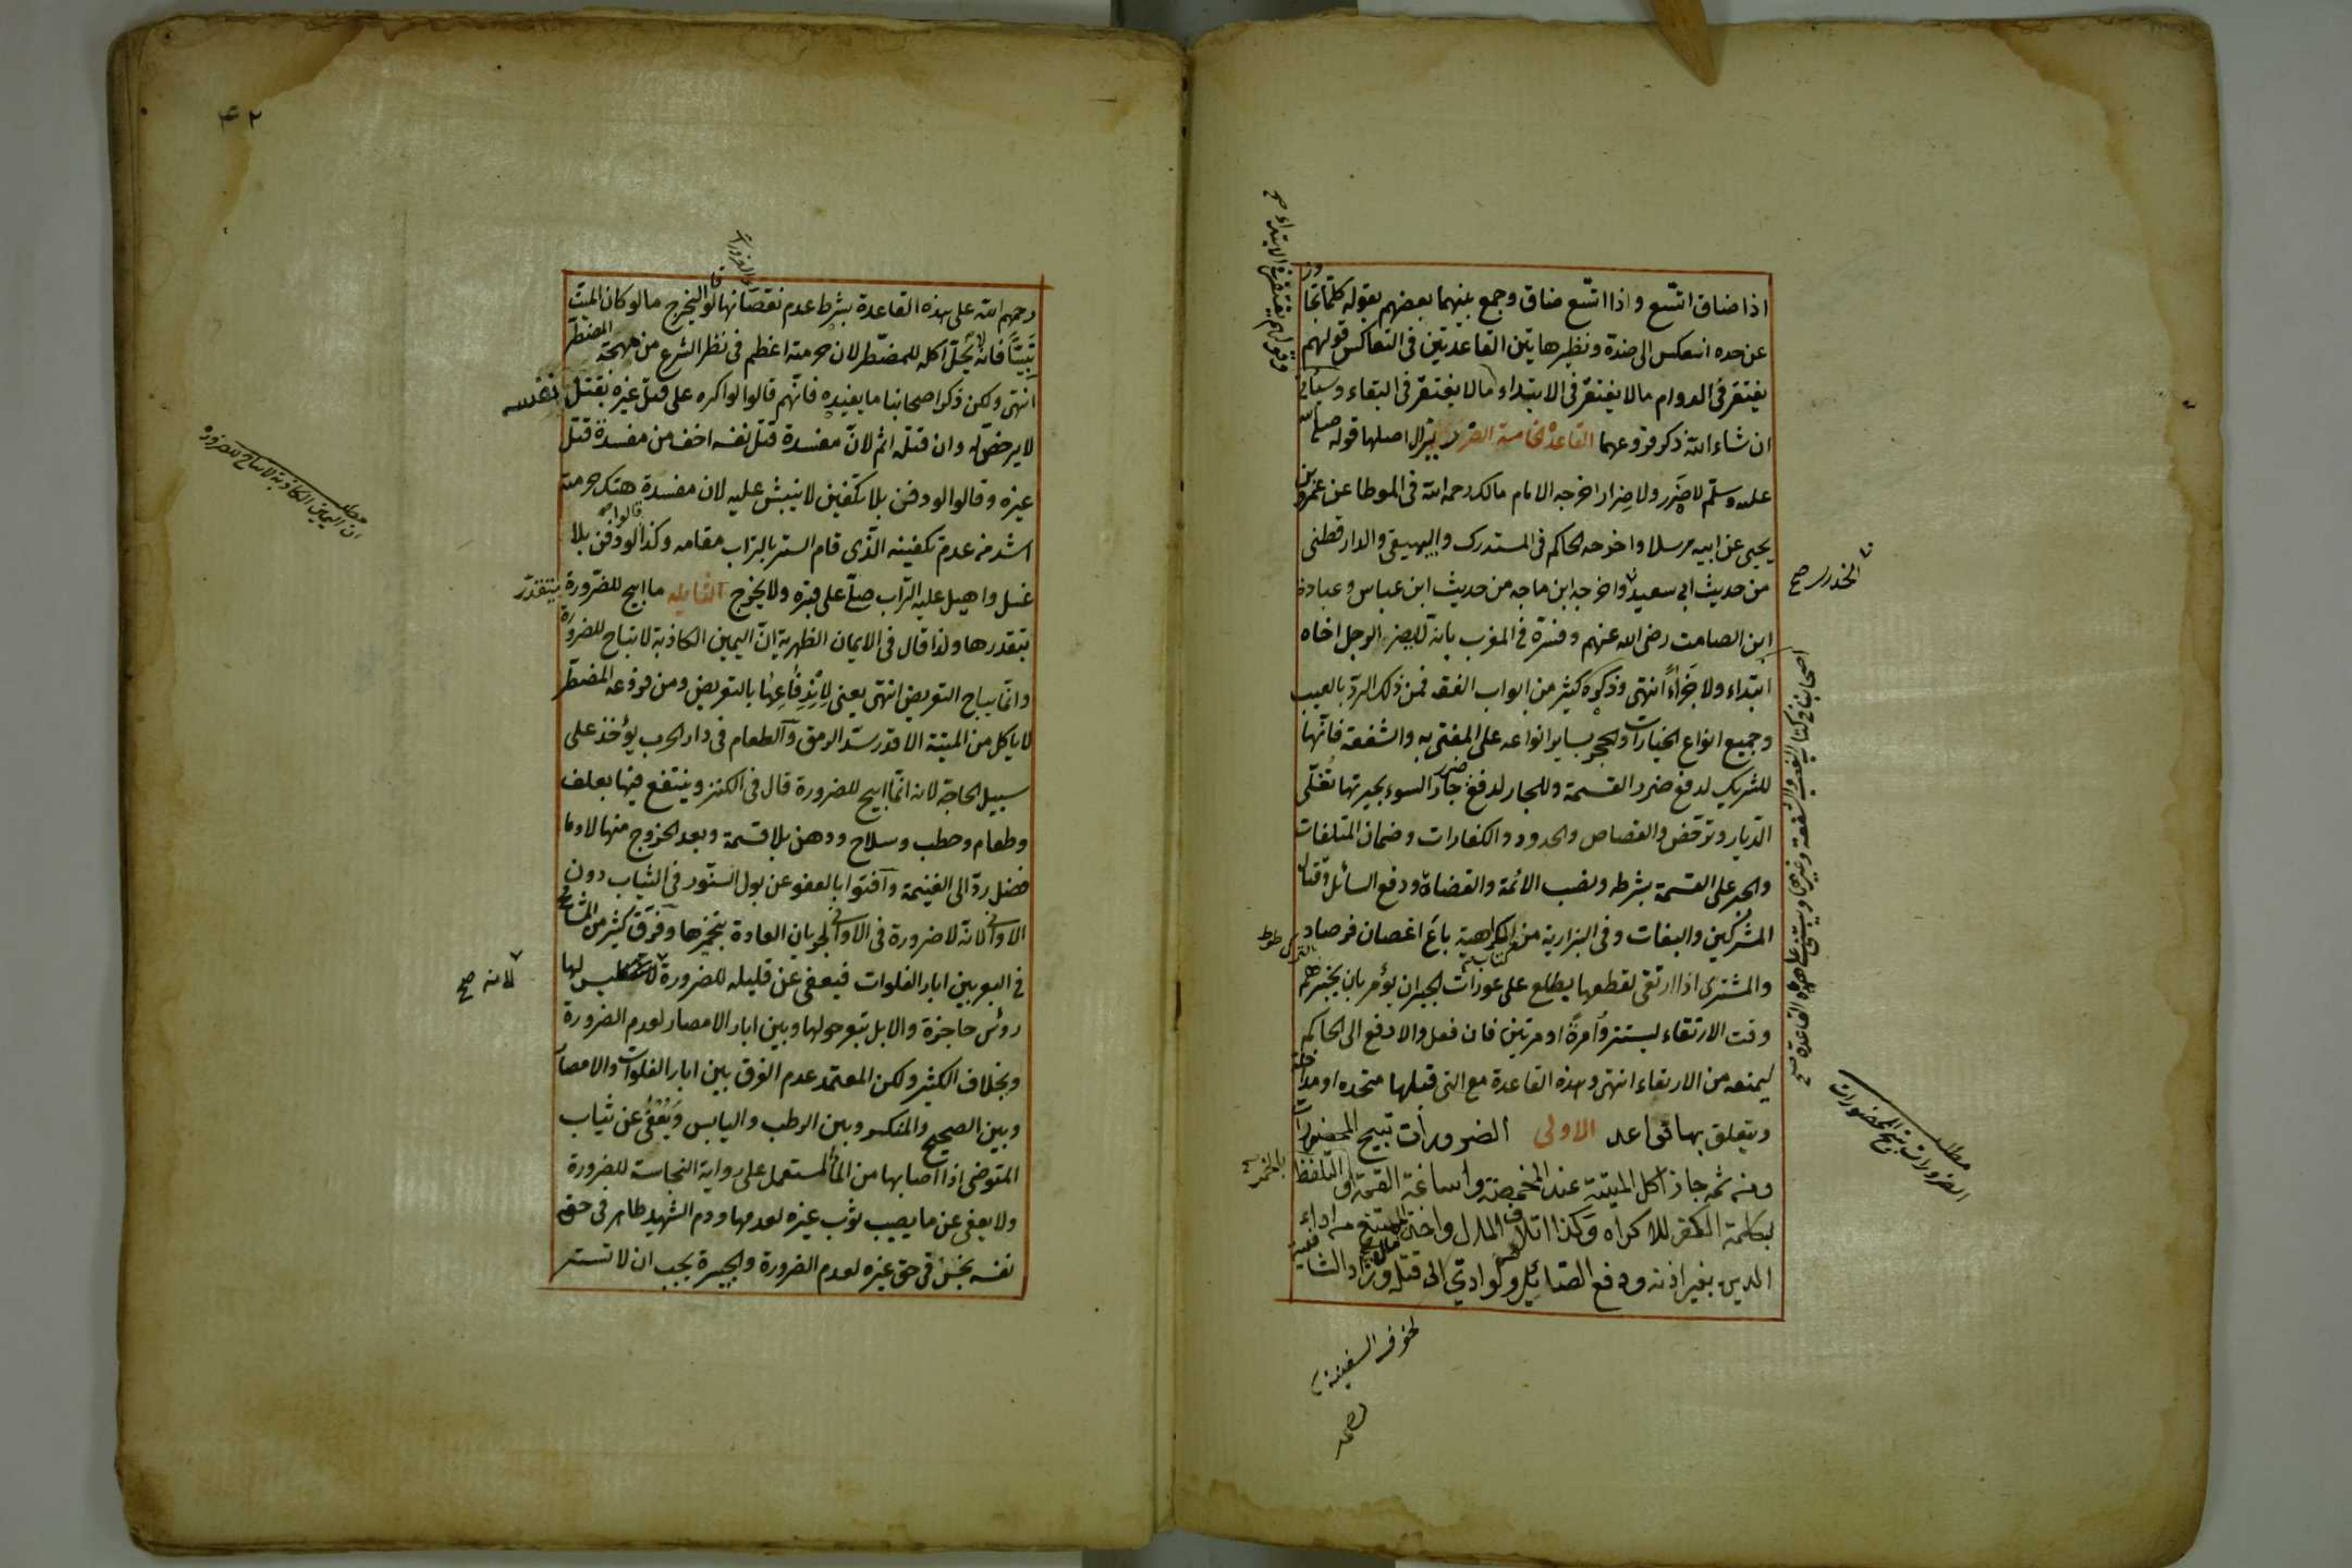 اذا ضاق اتّسع واذا اتّسع ضاق وجمع بينهما بعضهم بقوله كلما تجاوز
عن حده انعكس الى ضدّه ونظير هاتين القاعدتين في التعاكس قولهم
يغتفر في الدوام مالا يغتفر في الابتداء مالا يغتفر في البقاء وسيأتي
ان شاء الله ذكر فروعهما القاعدة الخامسة الضرر يزال اصلها قوله صلى الله
عليه وسلّم لا ضَرر ولا ضِرار اخرجه الامام مالك رحمه الله في الموطا عن عمرو بن
يحيى عن ابيه مرسلا واخرجه الحاكم في المستدرك والبيهقي والدارقطني
من حديث ابي سعيد واخرجه ابن ماجه من حديث ابن عباس وعبادة
ابن الصامت رضى الله عنهم وفسّره في المغرب بانه لا يضر الرجل اخاه
ابتداء ولا جزاءً انتهى وذكره كثير من ابواب الفقه فمن ذلك الردّ بالعيب
وجميع انواع الخيارات والحجر بساير انواعه على المفتى به والشفعة فانّها
للشريك لدفع ضرر القسمة وللجار لدفع ضرر جار السوء بجيرتها تُغلى
الدّيار وترخص والقصاص والحدود والكفارات وضمان المتلفات
والجبر على القسمة بشرطه ونصب الائمة والقضاة ودفع السائل وقتال
المشركين والبغات وفي البزازية من كتاب الكراهية باع اغصان فرصاد
والمشترى اذا ارتقى لقطعها يطلع على عورات الجيران يؤمر بان يخبرهم
وقت الارتقاء ليستتروا مرةً او مرتين فان فعل والا رفع الى الحاكم
ليمنعه من الارتقاء انتهى وهذه القاعدة مع التى قبلها متحده او متداخلة
ويتعلق بها قواعد الاولى الضرورات تبيح المحضورات
ومنه ثمه جاز اكل الميتة عند المخمصة واساغة اللقمة والتلفظ
بكلمة الكفر للاكراه وكذا اتلاف المال واخذ الممتنع من اداء
الدين بغير اذنه ودفع الصّائل ولو ادّى الى قتله وزاد الشافعية
وقولهم يغتفر في الابتداء صح
الخدرى صح
اصحابنا في كتاب الغصب والشفعة وغيرهما ويبتنى على هذه القاعدة صح
مطلب
الضرورات تبيح المحضورات
بالخمر
لخوف السفينة
٤٢
رحمهم الله على هذه القاعدة بشرط عدم نقصانها قالوا ليخرج مالو كان الميّت
نَبيًّا فانه لا يحلّ اكله للمضطر لان حرمته اعظم في نظر الشرع من مهجة المضطر
انتهى ولكن ذكر اصحابنا ما يفيده فانّهم قالوا لو اكره على قتل غيره بقتل نفسه
لا يرخّص له وان قتله اثم لانّ مفسدة قتل نفسه اخف من مفسدة قتل
غيره وقالوا لو دفن بلا تكفين لا ينبش عليه لان مفسدة هتك حرمته
اشد من عدم تكفينه الذّى قام الستر بالتراب مقامه وكذا قالوا لو دفن بلا
غسل واهيل عليه التّراب صلّى على قبره ولا يخرج الثانيه ما ابيح للضّرورة يتقدّر
بقدرها ولذا قال في الايمان الظهرية انّ اليمين الكاذبة لا تباح للضرورة
وانّما يباح التعريض انتهى يعنى لاندفاعها بالتعريض ومن فروعه المضطر
لا ياكل من الميتة الا قدر سدّ الرمق والطعام في دار الحرب يؤخذ على
سبيل الحاجة لانه انّما ابيح للضرورة قال في الكنز وينتفع فيها بعلف
وطعام وحطب وسلاح ودهن بلا قسمة وبعد الخروج منها لا وما
فضل ردّ الى الغنيمة وافتوا بالعفو عن بول السنّور في الثياب دون
الاوانى لانّه لا ضرورة في الاوانى لجريان العادة بتخميرها وفرّق كثير من المشايخ
في البعر بين ابار الفلوات فيعفى عن قليله للضرورة ليس لها
رؤس حاجزة والابل تبعر حولها وبين ابار الامصار لعدم الضرورة
وبخلاف الكثير ولكن المعتمد عدم الفرق بين ابار الفلوات والامصار
وبين الصحيح والمنكسر وبين الرطب واليابس ويُعْفى عن ثياب
المتوضى اذا اصابها من الماء المستعمل على رواية النجاسة للضرورة
ولا يعفى عن ما يصيب ثوب غيره لعدمها ودم الشهيد طاهر في حق
نفسه نجس في حق غيره لعدم الضرورة والجبيرة يجب ان لا تستر
مطلب
ان اليمين الكاذبة لا تباح للضرورة
لانه صح